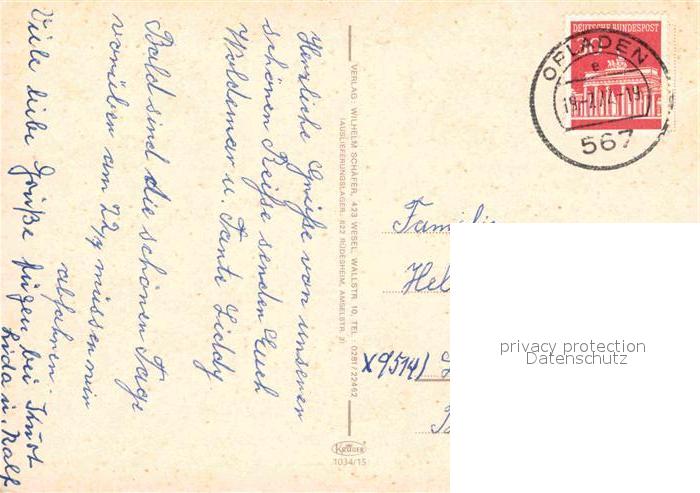 Herzliche Grüße von unserer
schönen Reise senden Euch
Waldemar u. Tante Liddy
Bald sind die schönen Tage
vorüber am 22/7 müssen wir
abfahren.
Viele liebe Grüße fügen bei
Lida u. Ralf
VERLAG: WILHELM SCHÄFER, 423 WESEL, WALLSTR. 10, TEL. 0281/22462
(AUSLIEFERUNGSLAGER: 622 RÜDESHEIM, AMSELSTR. 2)
KRÜGER
1034/15
DEUTSCHE BUNDESPOST
30
OPLADEN
e
567
Familie
Hel
X9514)
privacy protection
Datenschutz